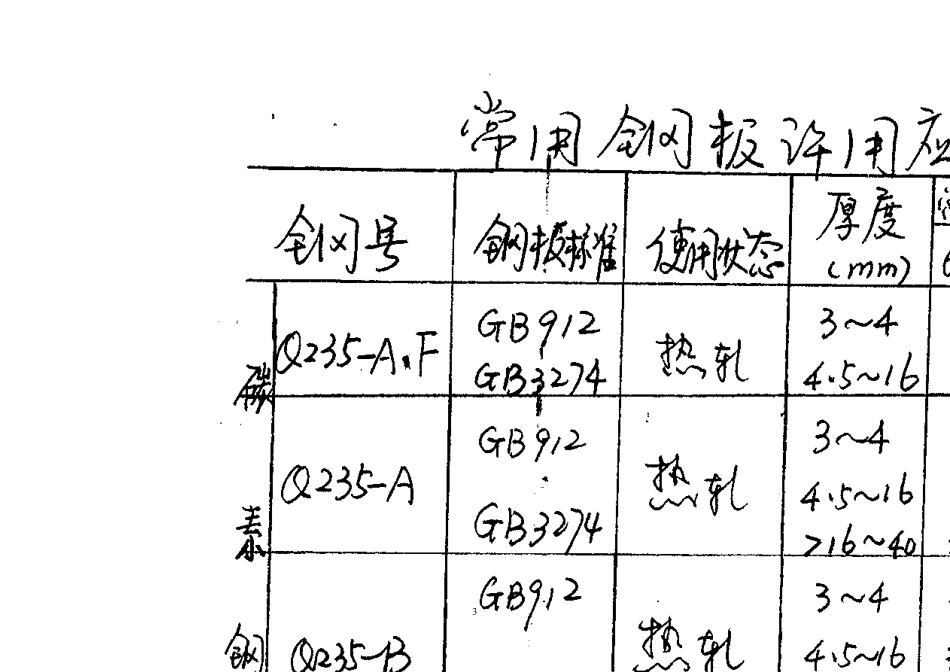 常用钢板许用应
钢号 钢板标准 使用状态 厚度
(mm)
碳素钢
Q235-A.F GB912 热轧 3~4
GB3274 4.5~16
Q235-A GB912 热轧 3~4
4.5~16
GB3274 >16~40
Q235-B GB912 热轧 3~4
4.5~16